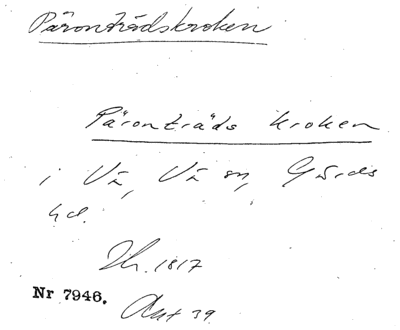 Päronträdskroken
Päronträds kroken
i Vä, Vä sn, Gärds
hd.
Hr. 1817
Nr 7946.
Ant 39